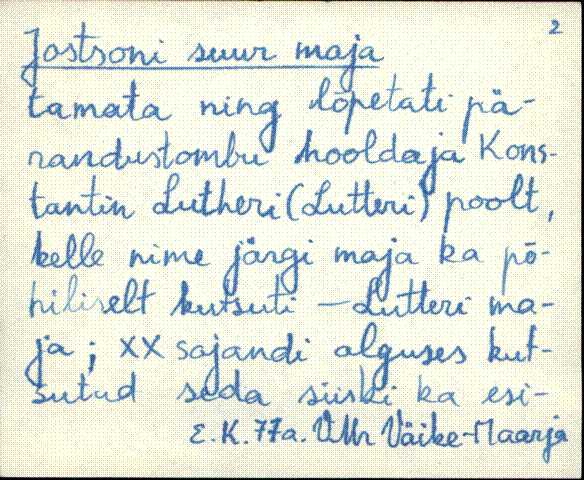 2
Jostsoni suur maja
tamata ning lõpetati pä-
randustombu hooldaja Kons-
tantin Lutheri (Lutteri) poolt,
kelle nime järgi maja ka põ-
hiliselt kutsuti – Lutteri ma-
ja; XX sajandi alguses kut-
sutud seda siiski ka esi-
E.K. 77a. VMr Väike-Maarja